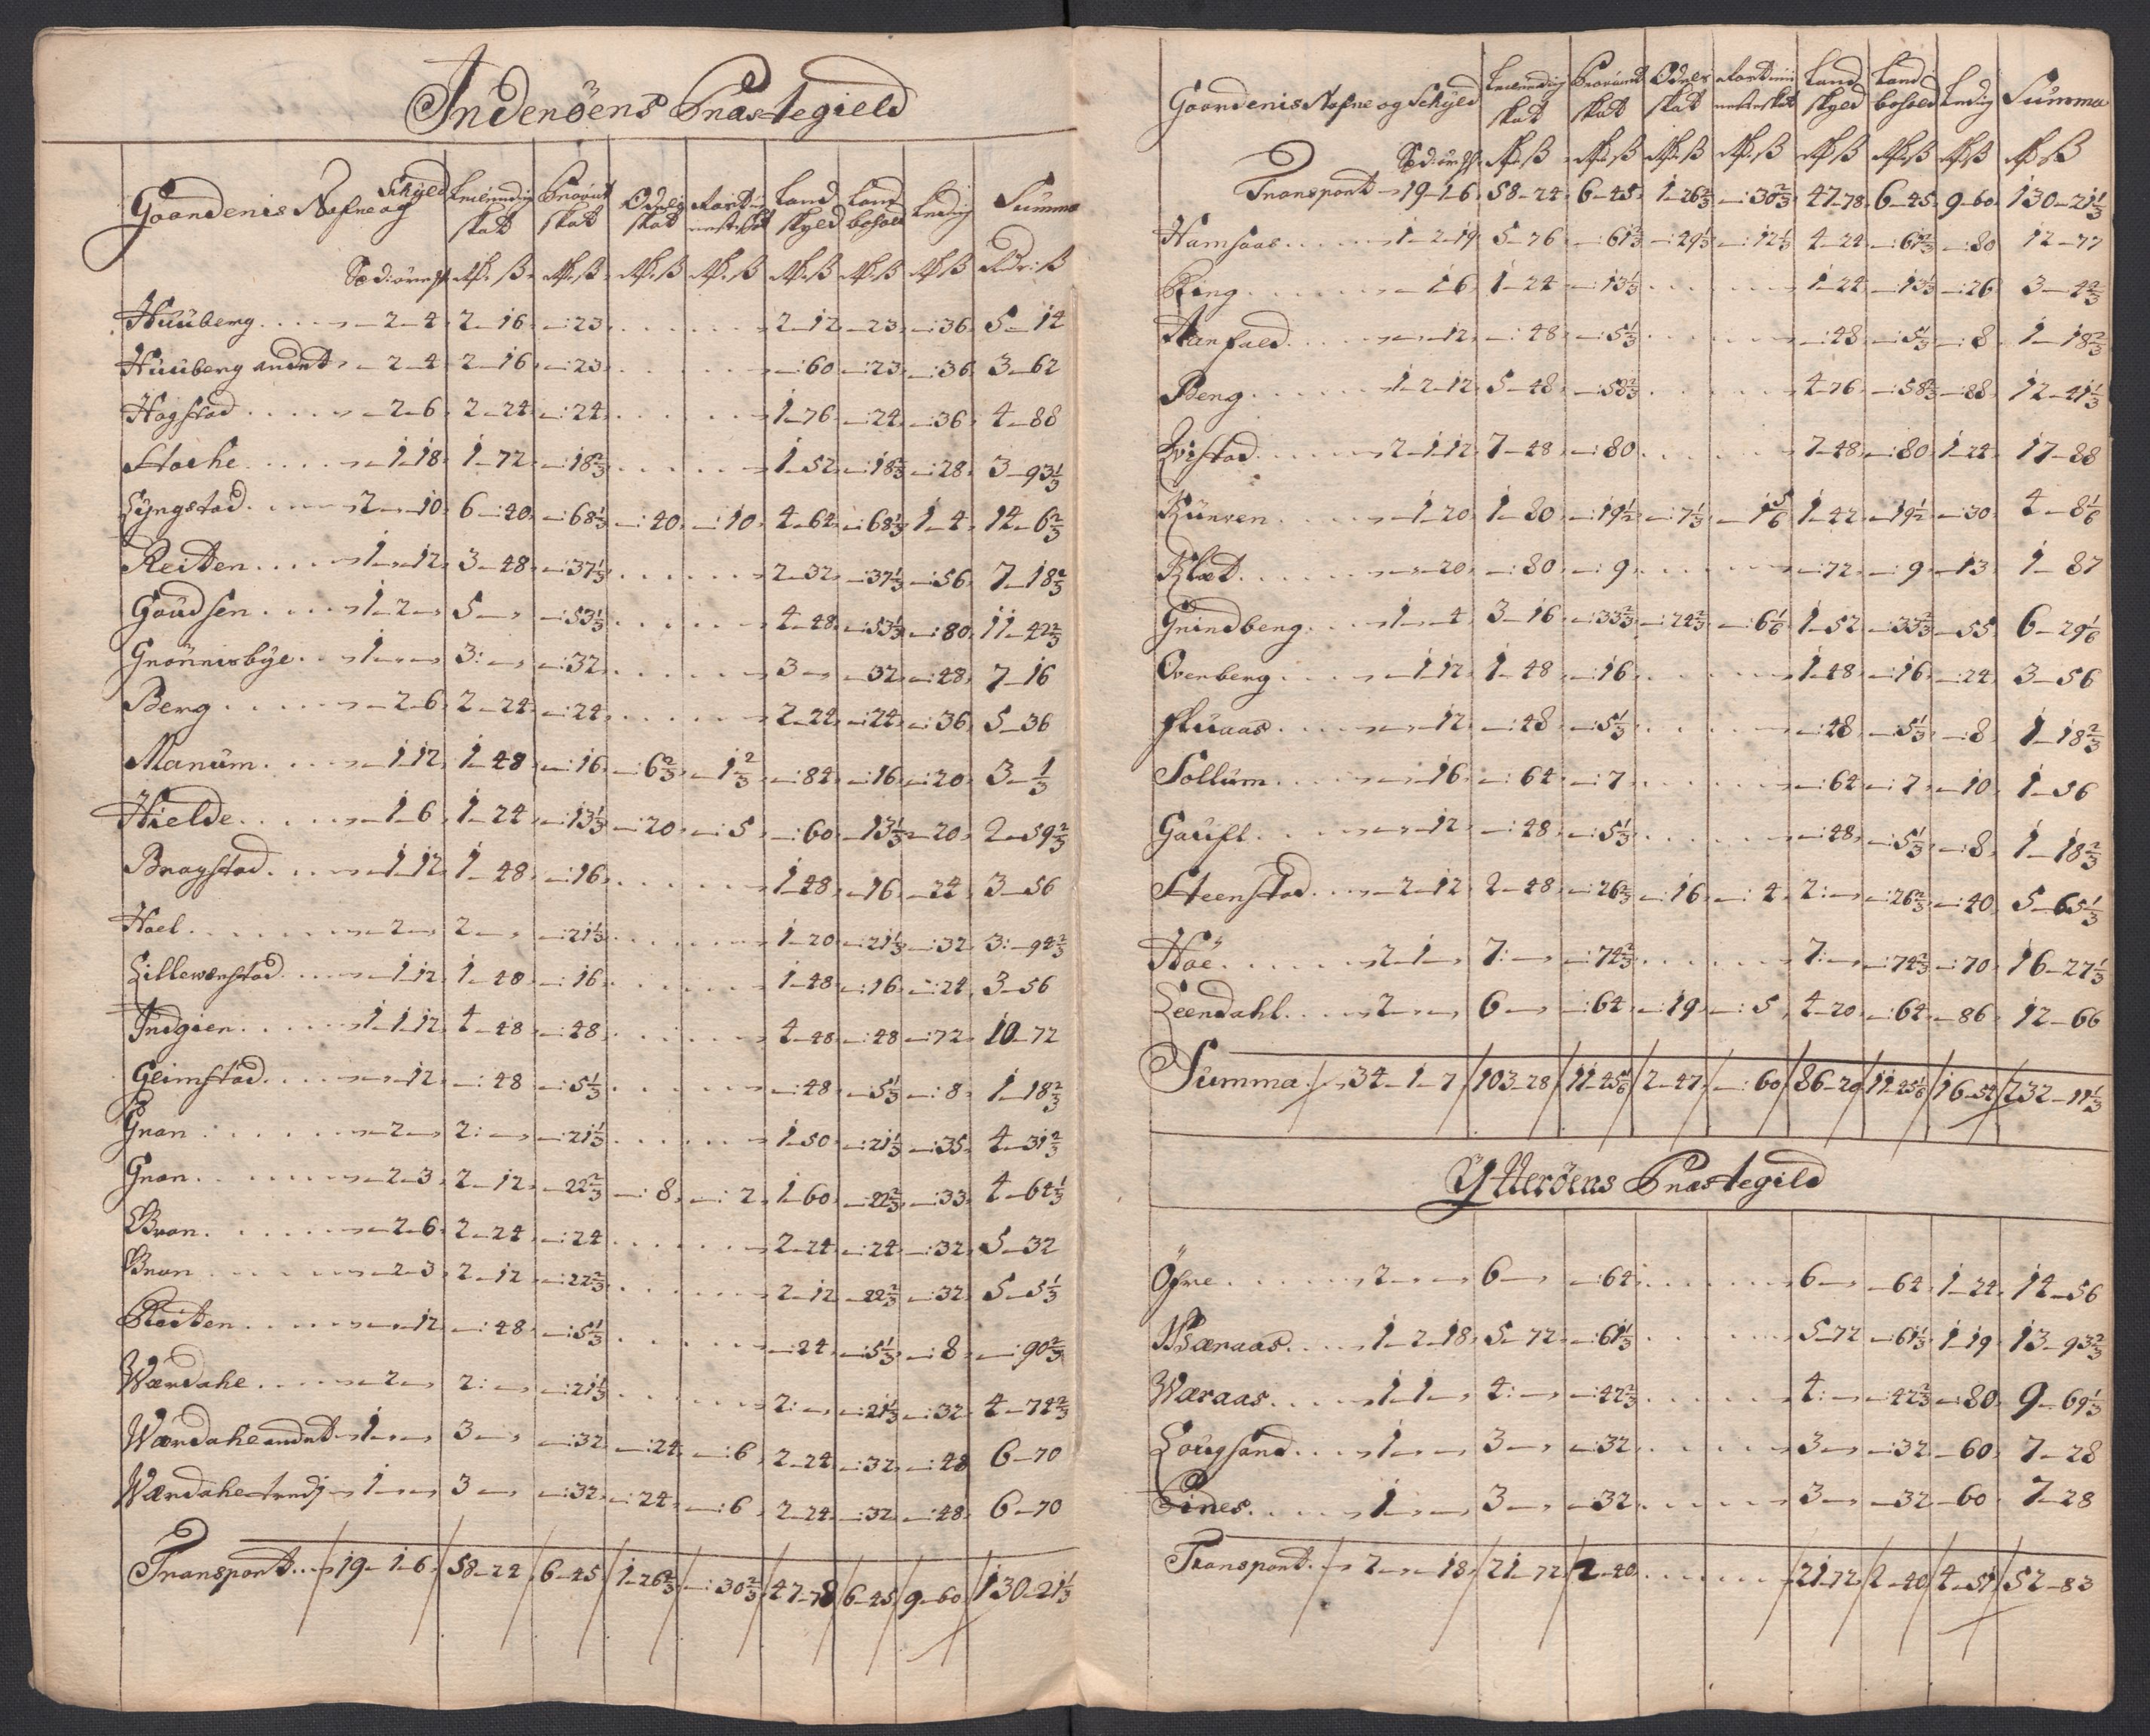 Inderöens Præstegield
Gaardenis Nafne og Schyld Leilending skat Proviant skat Odels skat Land skyld Land bohold Leding Summa
Huuberg . . . . 2-4 2-16 -:23 . . . 2-12 -23 -:36 5-14
Huuberg andet - 2-4 2-16 -:23 . . . -:60 -:23 -:36 3-62
Hogstad . . . . 2-6 2-24 -:24 . . . 1-76 -:24 -:36 4-88
Stoche . . . . 1-18 1-72 -:18⅔ . . . 1-52 -:18⅔ -:28 3-93⅓
Lyngstad . . . 2-„-10 6-:40 -:68⅓ -:40 -:10 4-64 -:68⅓ 1-4 14-6⅔
Reitten . . . . 1-„-12 3-48 -:37⅓ . . . 2-32 -:37⅓ -:56 7-18⅔
Goudsen . . . 1-2-„ 5-„ -:53⅓ . . . 4-48 -:53⅓ -:80 11-42⅔
Grönnisbye . . 1-„-„ 3:-„ -:32 . . . 3-„ -32 -:48 7-16
Berg . . . . . -2-6 2-24 -:24 . . . 2-24 -:24 -:36 5-36
Manum . . . . 1-12 1-48 -:16 -:6⅔ -1⅔ -:84 -:16 -:20 3-⅓
Hielde . . . . 1-6 1-24 -:13⅓ -:20 -:5 -:60 -13⅓ -20 2-59⅔
Bragstad . . . 1-12 1-48 -:16 . . . 1-48 -16 -24 3-56
Hoel . . . . . -2-„ 2-„ -:21⅓ . . . 1-20 -:21⅓ -:32 3:-94⅔
Lillewærstad . . . 1-12 1-48 -:16 . . . 1-48 -:16 -:24 3-56
Indgien . . . . 1-1-12 4-48 -:48 . . . 4-48 -:48 -:72 10-72
Geimstad . . . -„-12 -:48 -:5⅓ . . . -:48 -:5⅓ -:8 1-18⅔
Gran . . . . . -2-„ 2:-„ -:21⅓ . . . 1-50 -:21⅓ -:35 4-31⅔
Gran . . . . . -2-3 2-12 -22⅔ -:8 -:2 1-60 -:22⅔ -:33 4-64⅓
Bran . . . . . -2-6 2-24 -:24 . . . 2-24 -:24 -:32 5-32
Bran . . . . . -2-3 2-12 -:22⅔ . . . 2-12 -22⅔ -:32 5-5⅓
Reitten . . . . -„-12 -:48 -:5⅓ . . . -:24 -:5⅓ -:8 -:90⅔
Wærdahe . . . . -2-„ 2:-„ -:21⅓ . . . 2:-„ -:21⅓ -:32 4-74⅔
Wærdahe andet - 1-„-„ 3-„ -:32 -:24 -:6 2-24 -:32 -:48 6-70
Wærdahe tredj - 1-„-„ 3-„ -:32 -:24 -:6 2-24 -:32 -:48 6-70
Transport . . . 19-1-6 58-24 6-45 1-26⅔ -:30⅔ 47-78 6-45 9-60 130-21⅓
Gaardenis Nafne og Schyld Leilending skat Proviant skat Odels skat Land skyld Land bohold Leding Summa
Transport - 19-1-6 58-24 6-45 1-26⅔ -:30⅔ 47-78 6-45 9-60 130-21⅓
Hamsaas . . . . 1-2-19 5-76 -:61⅔ -:49⅓ -:12⅓ 4-24 -:61⅔ -:80 12-77
Ring . . . . . -1-6 1-24 -:13⅓ . . . 1-24 -:13⅓ -:26 3-4⅔
Aanfald . . . . -„-12 -:48 -:5⅓ . . . -:48 -:5⅓ -:8 1-18⅔
Berg . . . . . 1-2-12 5-48 -:58⅔ . . . 4-76 -:58⅔ -:88 12-41⅓
Qvistad . . . . 2-1-12 7-48 -:80 . . . 7-48 -:80 1-24 17-88
Kunren . . . . -1-20 1-80 -:19½ -:7⅓ -1⅚ 1-42 -:19½ -:30 4-8⅙
Klæt . . . . . -„-20 -:80 -:9 . . . -:72 -:9 -13 1-87
Grindberg . . . 1-„-4 3-16 -:33⅔ -:24⅔ -:6⅙ 1-52 -:33⅔ -55 6-29⅙
Overberg . . . -1-12 1-48 -:16 . . . 1-48 -:16 -:24 3-56
Fluaas . . . . -„-12 -:48 -:5⅓ . . . -:48 -:5⅓ -:8 1-18⅔
Sollum . . . . -„-16 -:64 -:7 . . . -:64 -:7 -10 1-56
Gaufl . . . . . -„-12 -:48 -:5⅓ . . . -:48 -:5⅓ -:8 1-18⅔
Steenstad . . . -2-12 2-48 -:26⅔ -:16 -:4 2:-„ -:26⅔ -:40 5-65⅓
Höe . . . . . 2-1-„ 7:-„ -:74⅔ . . . 7:-„ -:74⅔ -:70 16-27⅓
Leendahl . . . 2-„-„ 6-„ -:64 -:19 -:5 4-20 -:64 -86 12-66
Summa . . . 34-1-7 103-28 11-45⅙ 2-47 -:60 86-20 11-45⅙ 16-54 232-11⅓
Ytteröens Præstegild
Öfre . . . . . 2-„-„ 6-„ -:64 . . . 6-„ -64 1-24 14-56
Bæraas . . . . 1-2-18 5-72 -:61⅓ . . . 5-72 -61⅓ 1-19 13-93⅔
Wæraas . . . . 1-1-„ 4:-„ -:42⅔ . . . 4:-„ -:42⅔ -:80 9-69⅓
Lougsand . . . 1-„-„ 3-„ -:32 . . . 3-„ -:32 -60 7-28
Eines . . . . . 1-„-„ 3-„ -:32 . . . 3-„ -32 -60 7-28
Transport . . 7-„-18 21-72 2-40 . . . 21-72 2-40 4-51 52-83